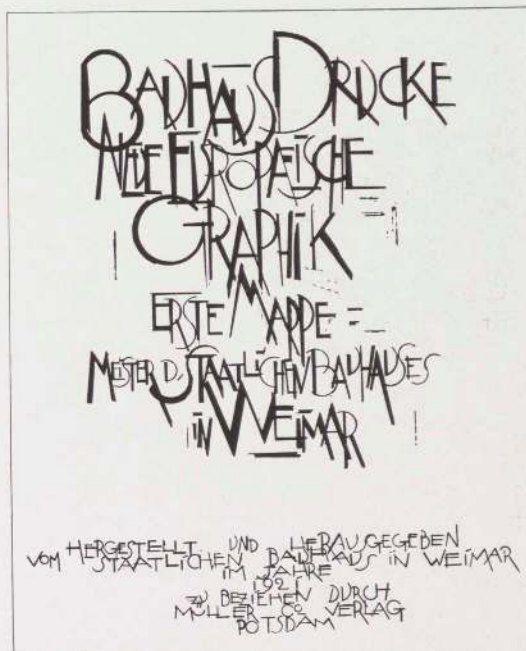 BAUHAUS DRUCKE
NEUE EUROPAEISCHE
GRAPHIK
ERSTE MAPPE
MEISTER D. STAATLICHEN BAUHAUSES
in WEiMAR
HERGESTELLT UND HERAUSGEGEBEN
VOM STAATLICHEN BAUHAUS IN WEIMAR
IM JAHRE
1921
ZU BEZIEHEN DURCH
MÜLLER & CO VERLAG
POTSDAM